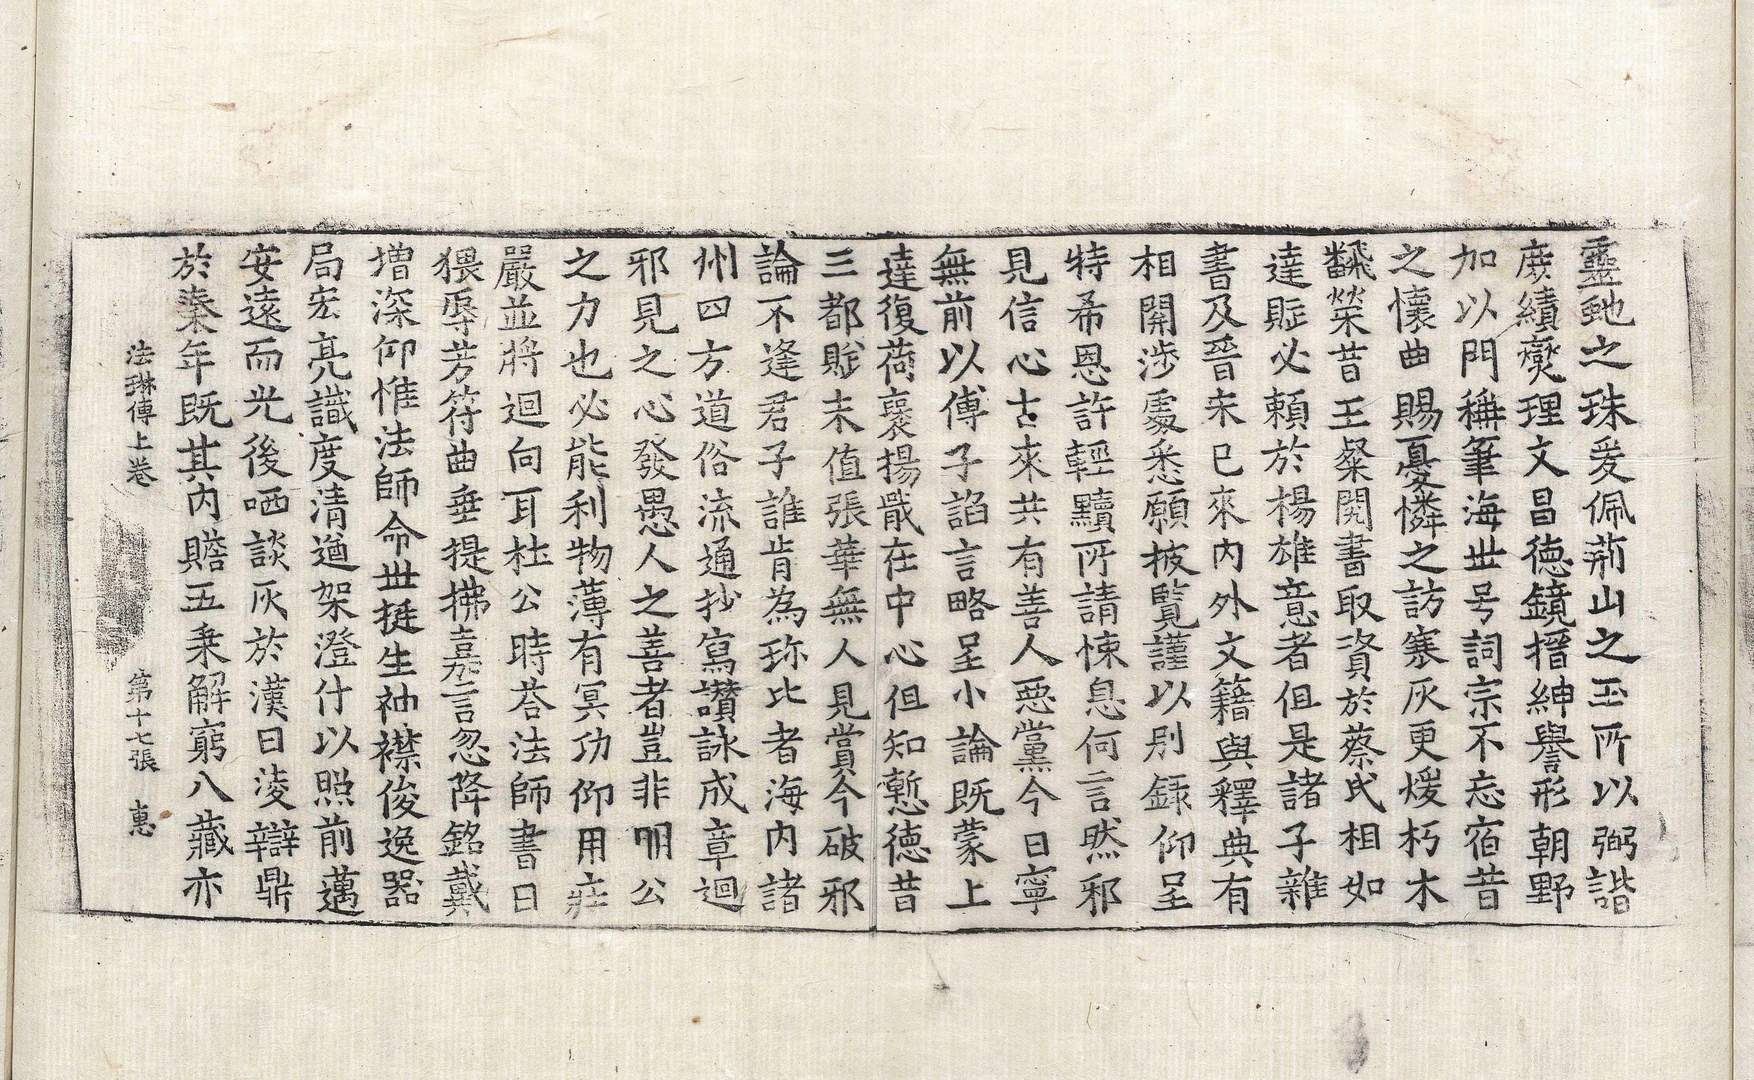 靈虵之珠爰佩荊山之玉所以弼諧
庶績爕理文昌德鏡搢紳譽形朝野
加以門稱筆海世号詞宗不忘宿昔
之懷曲賜憂憐之訪寒灰更煖朽木
飜榮昔王粲閱書取資於蔡氏相如
達賦必頼於楊雄意者但是諸子雜
書及晉宋已來內外文籍與釋典有
相關涉處悉願披覽謹以別録仰呈
特希恩許輕黷所請悚息何言然邪
見信心古來共有善人惡黨今日寧
無前以傅子謟言略呈小論既蒙上
達復荷襃揚戢在中心但知慙德昔
三都賦未值張華無人見賞今破邪
論不逢君子誰肯為珎比者海內諸
州四方道俗流通抄寫讃詠成章迴
邪見之心發愚人之善者豈非明公
之力也必能利物薄有冥功仰用莊
嚴並將迴向耳杜公時荅法師書曰
猥辱芳符曲垂提拂嘉言忽降銘戴
增深仰惟法師命世挺生袖襟俊逸器
局宏亮識度清遒架澄什以照前邁
安遠而光後哂談灰於漢日淩辯鼎
於秦年既其內賠五乘解窮八藏亦
法琳傳上卷　第十七張　惠